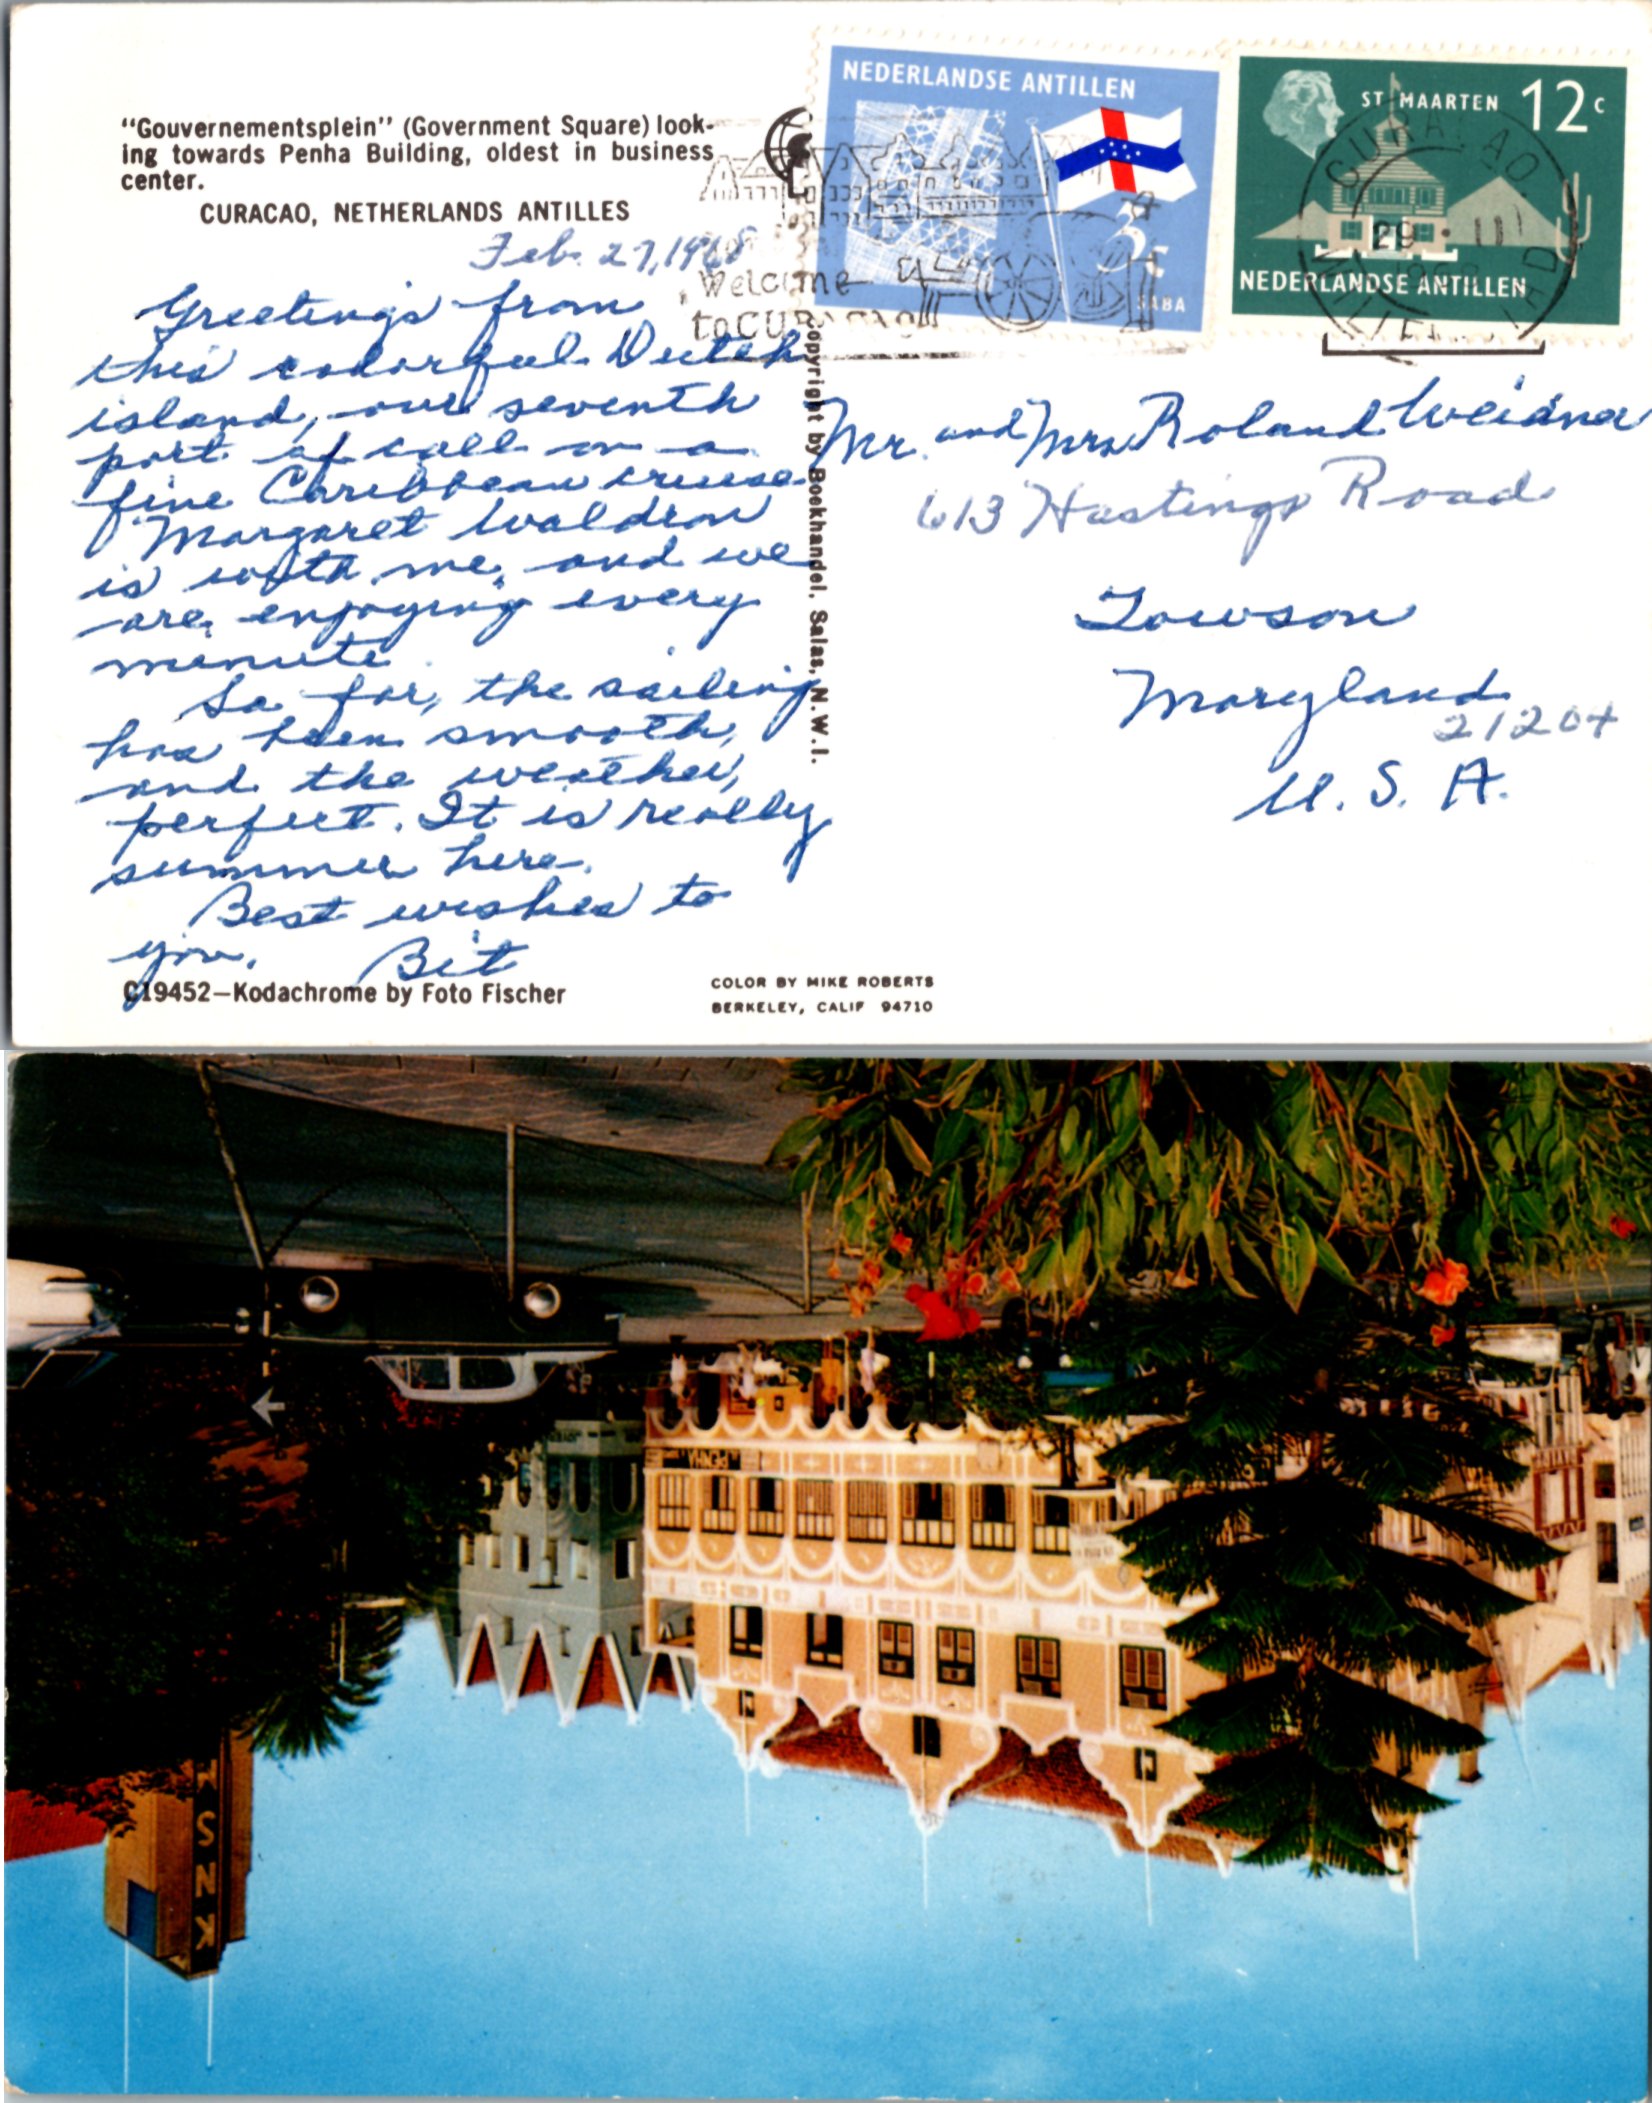 "Gouvernementsplein" (Government Square) look-
ing towards Penha Building, oldest in business
center.
CURACAO, NETHERLANDS ANTILLES
Feb. 27, 1968
Greetings from
this colorful Dutch
island, our seventh
port of call on a
fine Caribbean cruise.
Margaret Waldron
is with me, and we
are enjoying every
minute.
So far, the sailing
has been smooth,
and the weather,
perfect. It is really
summer here.
Best wishes to
you. Bit
C19452—Kodachrome by Foto Fischer
COLOR BY MIKE ROBERTS
BERKELEY, CALIF 94710
Copyright by Boekhandel, Salas, N.W.I.
Welcome
to CURACAO
NEDERLANDSE ANTILLEN
3c
SABA
ST MAARTEN 12c
NEDERLANDSE ANTILLEN
CURACAO.
29 · II
WILLEMSTAD
Mr. and Mrs Roland Weidner
613 Hastings Road
Towson
Maryland
21204
U. S. A.
PENHA